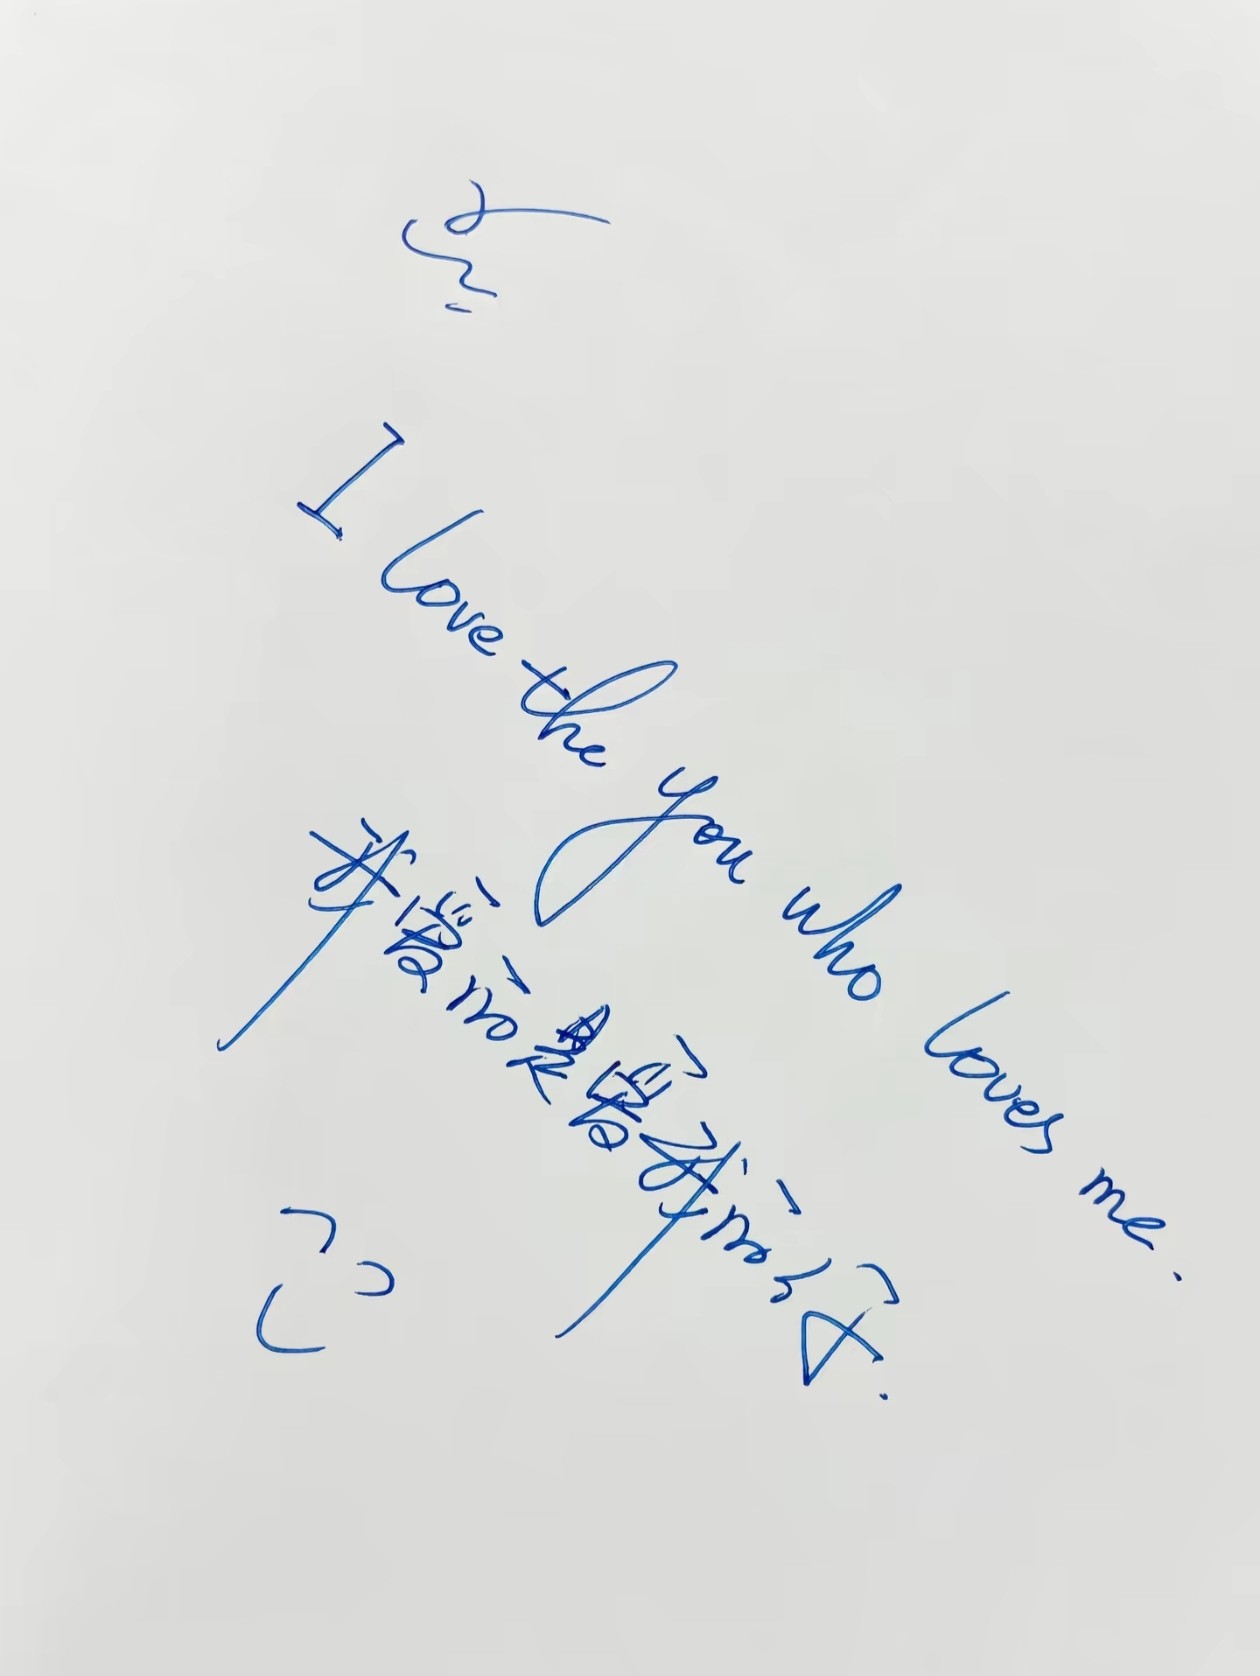 I love the you who loves me.
我爱的是爱我的你.